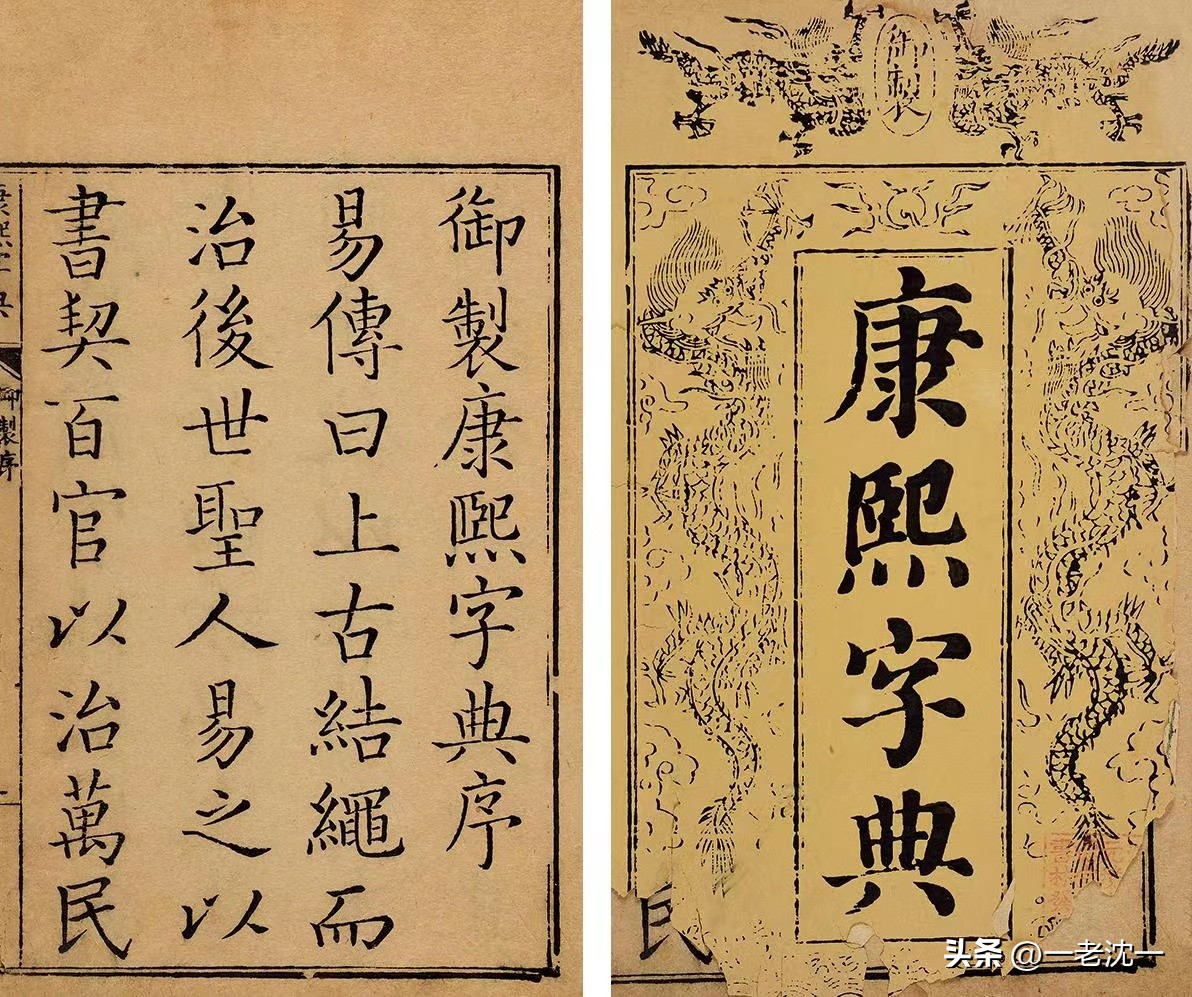 御製
康熙字典
民
御製康熙字典序
易傳曰上古結繩而
治後世聖人易之以
書契百官以治萬民
康熙字典
御製序
头条 @一老沈一